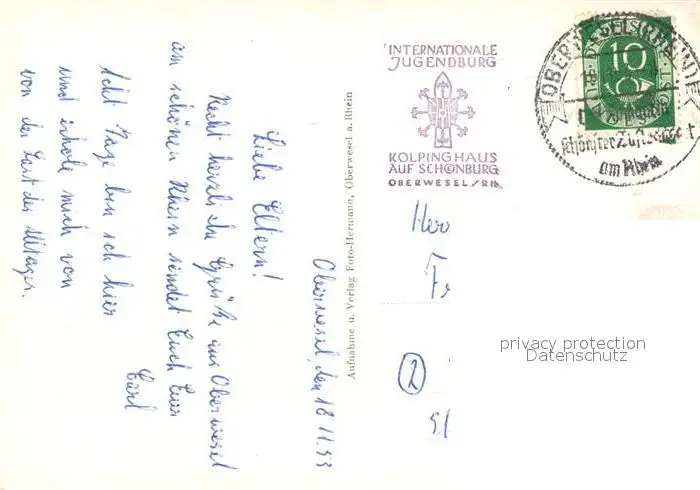 Oberwesel, den 18.11.53
Liebe Eltern!
Recht herzliche Grüße aus Oberwesel
am schönen Rhein sendet Euch Euer
Carl
Acht Tage bin ich hier
und erhole mich von
von der Last des Alltages.
Aufnahme u. Verlag Foto-Hermann, Oberwesel a. Rhein
INTERNATIONALE
JUGENDBURG
KOLPINGHAUS
AUF SCHÖNBURG
OBERWESEL/RH.
OBERWESEL (RHEIN)
10
schönster
am Rhein
Herr
Fr
2
privacy protection
Datenschutz